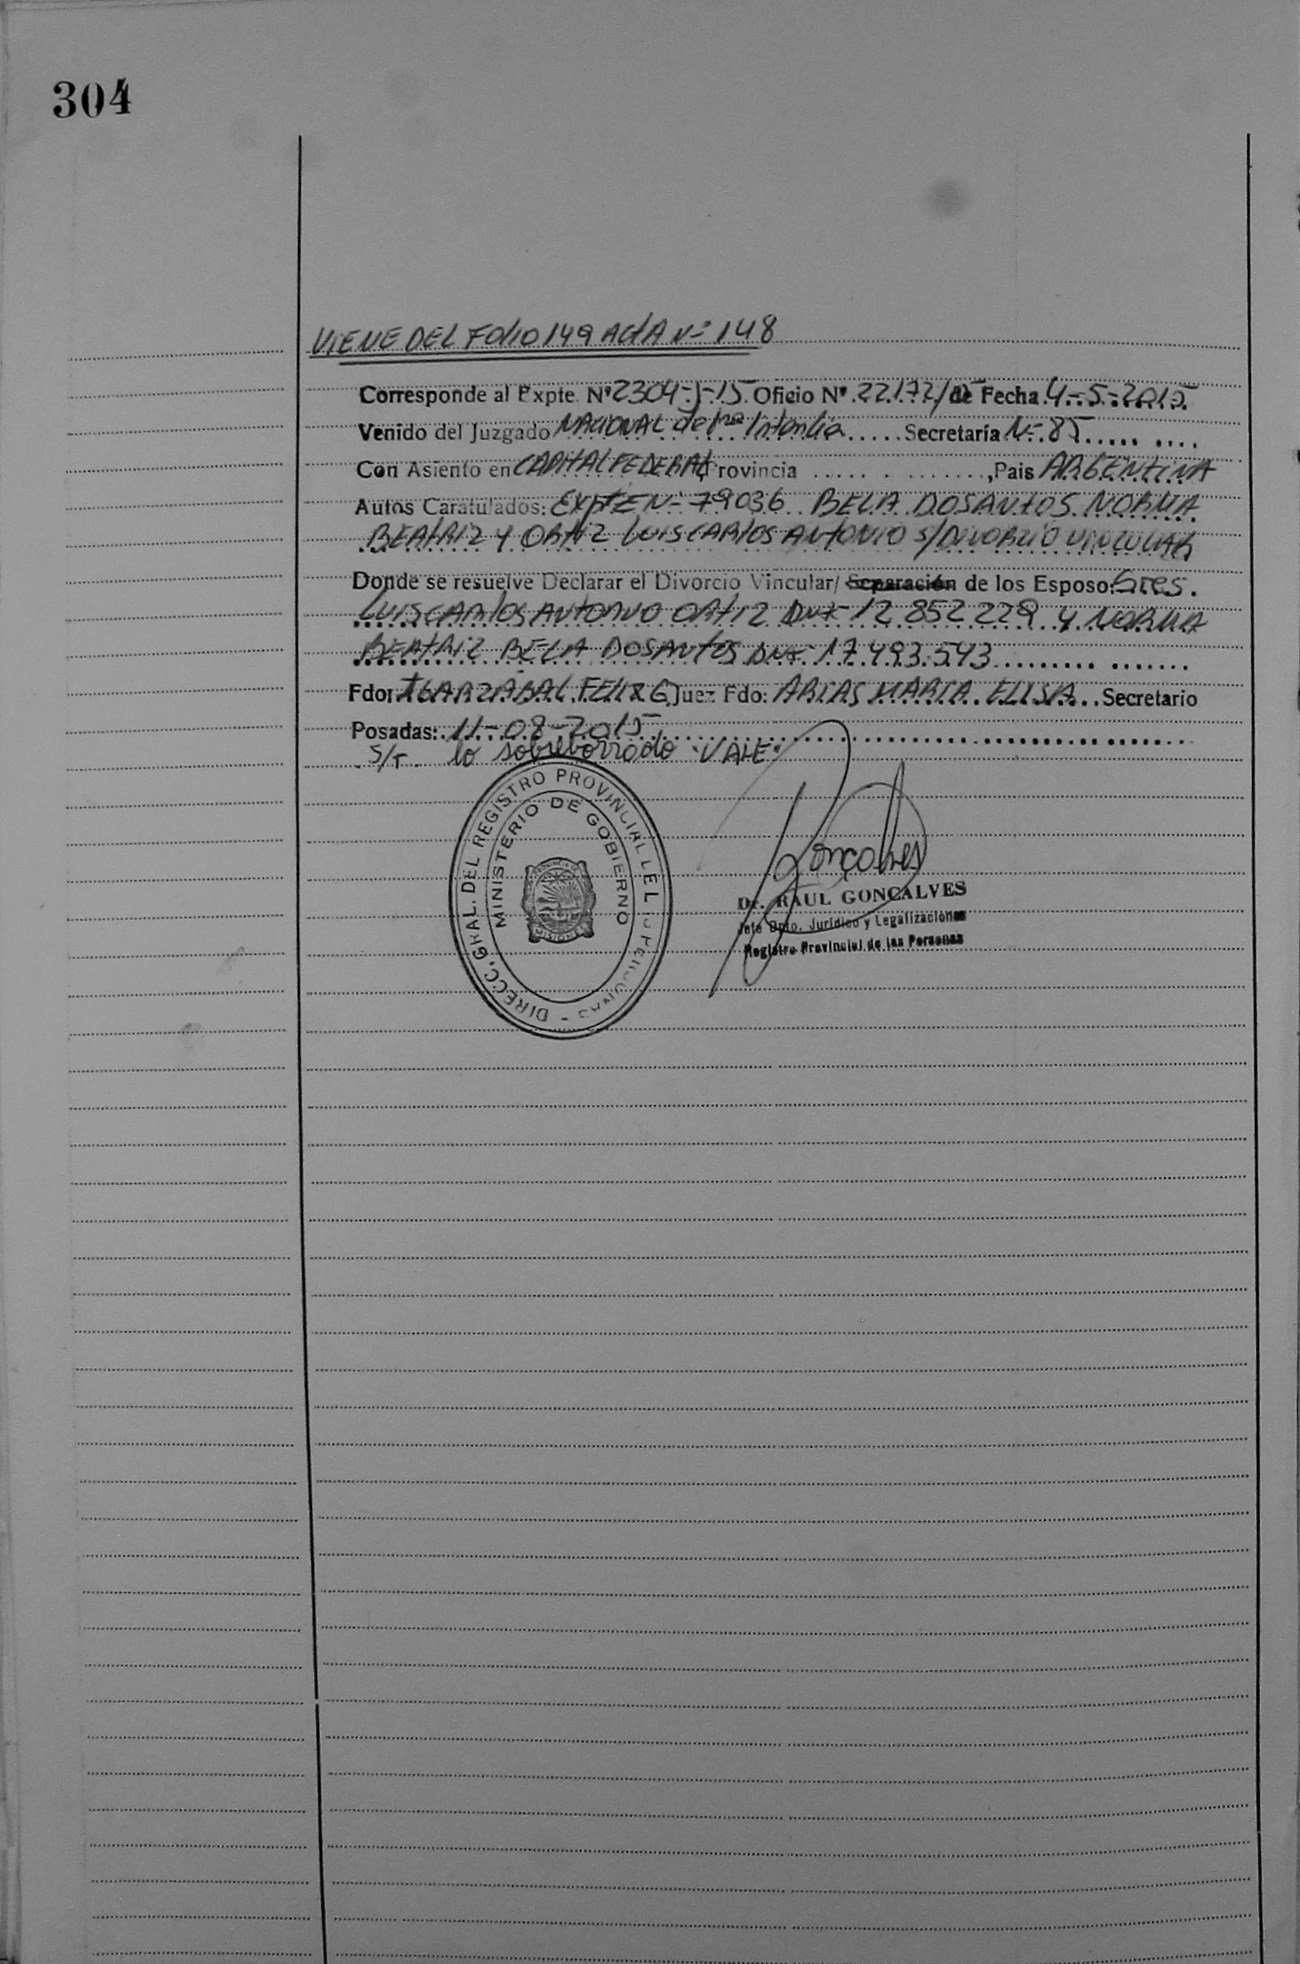 304
VIENE DEL FOLIO 149 ACTA Nº 148
Corresponde al Expte. Nº 2304-J-15 Oficio Nº 22172/15 de Fecha 4-5-2015
Venido del Juzgado NACIONAL de 1ra Instancia Secretaría Nº 85
Con Asiento en CAPITAL FEDERAL Provincia ,Pais ARGENTINA
Autos Caratulados: EXPTE Nº 79036 BELA DOSANTOS NORMA
BEATRIZ Y ORTIZ LUIS CARLOS ANTONIO S/DIVORCIO VINCULAR
Donde se resuelve Declarar el Divorcio Vincular/ Separación de los Esposo: Sres.
LUIS CARLOS ANTONIO ORTIZ DNI 12.852.229 y NORMA
BEATRIZ BELA DOSANTOS DNI 17.493.543
Fdo: IGARZABAL FELIX G. Juez Fdo: ARIAS MARIA ELISA Secretario
Posadas: 11-08-2015
S/T lo sobreborrado "VALE"
DIRECC. GRAL. DEL REGISTRO PROVINCIAL DE L PERSONAS -
MINISTERIO DE GOBIERNO
MISIONES
Gonçalves
Dr. RAUL GONCALVES
Jefe Dpto. Jurídico y Legalizaciones
Registro Provincial de las Personas